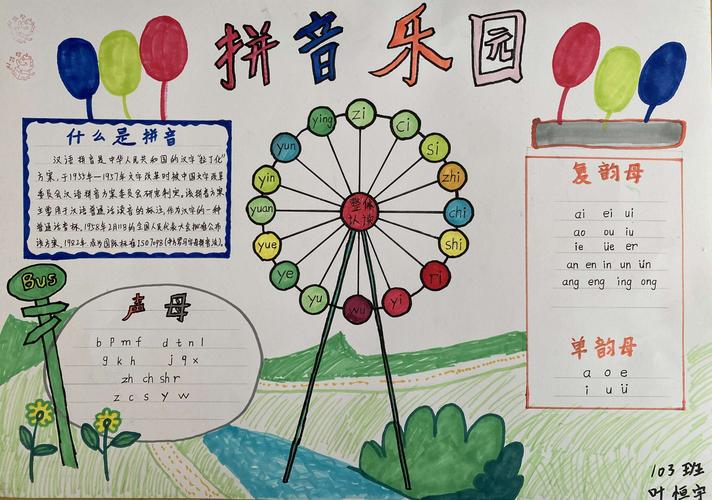 拼音乐园
什么是拼音
汉语拼音是中华人民共和国的汉字"拉丁化"
方案,于1955年—1957年文字改革时被中国文字改革
委员会汉语拼音方案委员会研究制定,该拼音方案
主要用于汉语普通话读音的标注,作为汉字的一种
普通话音标。1958年2月11日的全国人民代表大会批准公布
该方案。1982年,成为国际标准ISO7098
声母
b p m f d t n l
g k h j q x
zh ch sh r
z c s y w
Bus
整体
认读
zi
ci
si
zhi
chi
shi
ri
yi
wu
yu
ye
yue
yuan
yin
yun
ying
复韵母
ai ei ui
ao ou iu
ie üe er
an en in un ün
ang eng ing ong
单韵母
a o e
i u ü
103班
叶恒宇